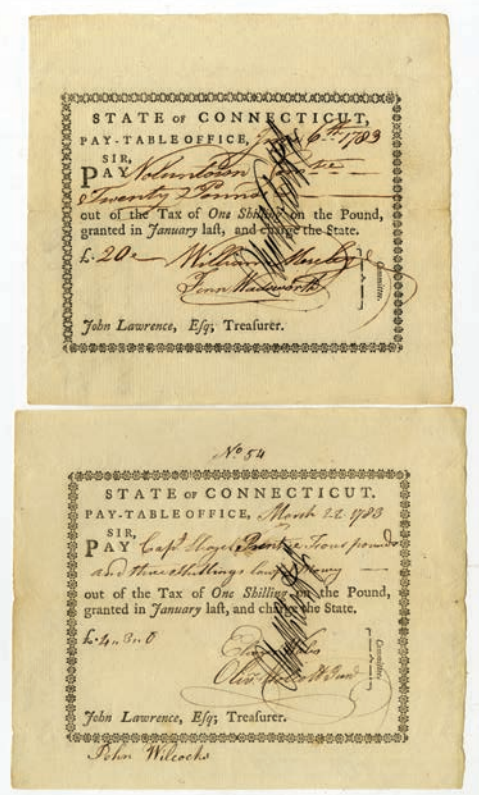 STATE OF CONNECTICUT,
PAY-TABLE OFFICE, 6th 1783
SIR,
PAY Voluntown
Twenty Pounds
out of the Tax of One Shilling on the Pound,
granted in January last, and charge the State.
£.20
William Moseley
Fenn Wadsworth
Committee.
John Lawrence, Esq; Treasurer.
No 54
STATE OF CONNECTICUT.
PAY-TABLE OFFICE, March 22 1783
SIR,
PAY Capt Prentice Four pounds
and three Shillings Money
out of the Tax of One Shilling on the Pound,
granted in January last, and charge the State.
£.4.3.0
Oliv Wolcott Jun
Committee.
John Lawrence, Esq; Treasurer.
John Wilcocks